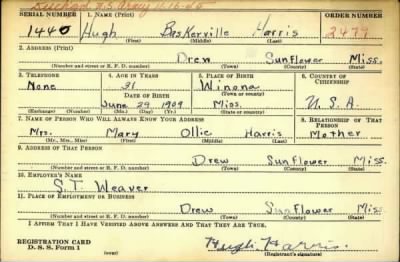 U.S. Army 11-16-40
SERIAL NUMBER 1. NAME (Print) ORDER NUMBER
1440 Hugh Baskerville Harris 2479
(First) (Middle) (Last)
2. ADDRESS (Print)
Drew Sunflower Miss.
(Number and street or R. F. D. number) (Town) (County) (State)
3. TELEPHONE 4. AGE IN YEARS 5. PLACE OF BIRTH 6. COUNTRY OF CITIZENSHIP
None 31 Winona
DATE OF BIRTH (Town or county)
June 29 1909 Miss. U.S.A.
(Exchange) (Number) (Mo.) (Day) (Yr.) (State or country)
7. NAME OF PERSON WHO WILL ALWAYS KNOW YOUR ADDRESS 8. RELATIONSHIP OF THAT PERSON
Mrs. Mary Ollie Harris Mother
(Mr., Mrs., Miss) (First) (Middle) (Last)
9. ADDRESS OF THAT PERSON
Drew Sunflower Miss
(Number and street or R. F. D. number) (Town) (County) (State)
10. EMPLOYER'S NAME
S.T. Weaver
11. PLACE OF EMPLOYMENT OR BUSINESS
Drew Sunflower Miss
(Number and street or R. F. D. number) (Town) (County) (State)
I AFFIRM THAT I HAVE VERIFIED ABOVE ANSWERS AND THAT THEY ARE TRUE.
REGISTRATION CARD Hugh Harris
D. S. S. Form 1 (over) (Registrant's signature)